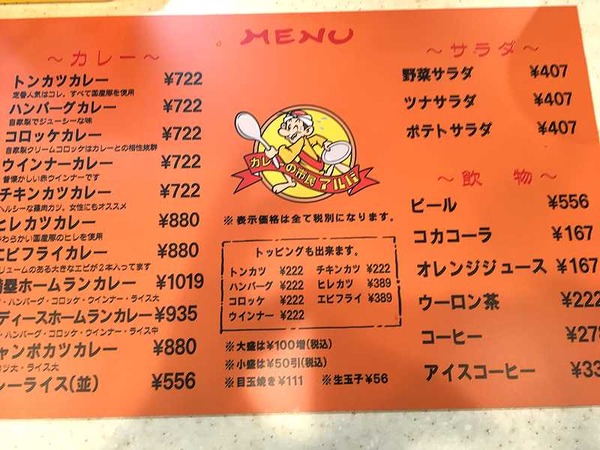 MENU
～カレー～
トンカツカレー ¥722
定番人気はコレ。すべて国産豚を使用
ハンバーグカレー ¥722
自家製でジューシーな味
コロッケカレー ¥722
自家製クリームコロッケはカレーとの相性抜群
ウインナーカレー ¥722
昔懐かしい赤ウインナーです
チキンカツカレー ¥722
ヘルシーな鶏肉カツ。女性にもオススメ
ヒレカツカレー ¥880
やわらかい国産豚のヒレを使用
エビフライカレー ¥880
ボリュームのある大きなエビが2本入ってます
満塁ホームランカレー ¥1019
・ハンバーグ・コロッケ・ウインナー・ライス大
ディースホームランカレー ¥935
・ハンバーグ・コロッケ・ウインナー・ライス中
ャンボカツカレー ¥880
カツ大・ライス大
レーライス(並) ¥556
カレーの市民アルバ
※表示価格は全て税別になります。
トッピングも出来ます。
トンカツ ¥222 チキンカツ ¥222
ハンバーグ ¥222 ヒレカツ ¥389
コロッケ ¥222 エビフライ ¥389
ウインナー ¥222
※大盛は¥100増(税込)
※小盛は¥50引(税込)
※目玉焼き¥111 ※生玉子¥56
～サラダ～
野菜サラダ ¥407
ツナサラダ ¥407
ポテトサラダ ¥407
～飲 物～
ビール ¥556
コカコーラ ¥167
オレンジジュース ¥167
ウーロン茶 ¥222
コーヒー ¥278
アイスコーヒー ¥33